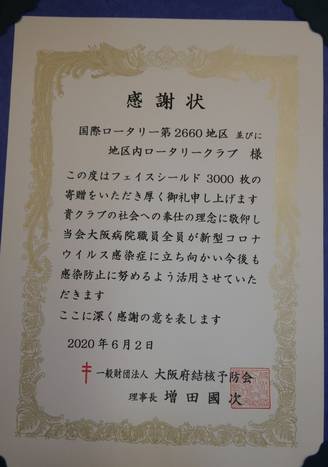 感謝状
国際ロータリー第2660地区 並びに
地区内ロータリークラブ 様
この度はフェイスシールド 3000 枚の
寄贈をいただき厚く御礼申し上げます
貴クラブの社会への奉仕の理念に敬仰し
当会大阪病院職員全員が新型コロナ
ウイルス感染症に立ち向かい今後も
感染防止に努めるよう活用させていた
だきます
ここに深く感謝の意を表します
2020年6月2日
一般財団法人 大阪府結核予防会
理事長 増田國次